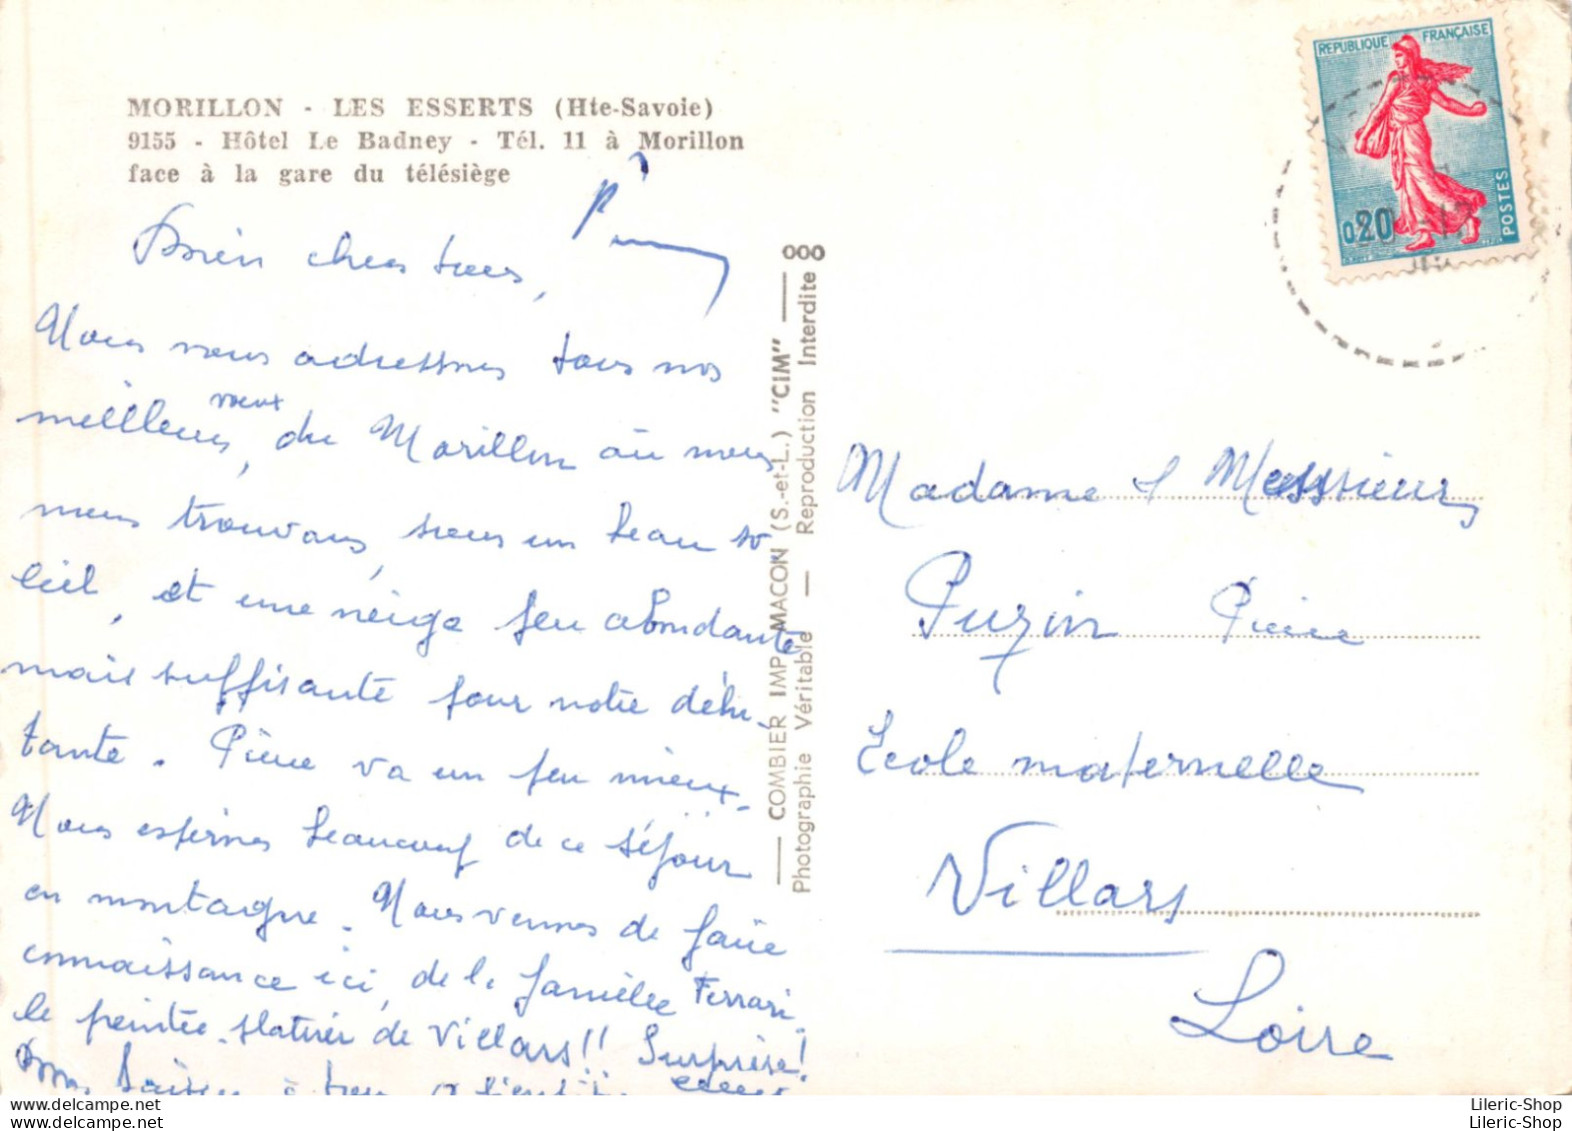 MORILLON - LES ESSERTS (Hte-Savoie)
9155 - Hôtel Le Badney - Tél. 11 à Morillon
face à la gare du télésiège
Bien chers tous,
Nous vous adressons tous nos
meilleurs voeux, du Morillon où nous
nous trouvons, sous un beau so
leil, et une neige peu abondante
mais suffisante pour notre débu-
tante. Pierre va un peu mieux.
Nous espérons beaucoup de ce séjour
en montagne. Nous venons de faire
connaissance ici, de la famille Ferrari,
le peintre-plâtrier de Villars!! Surprise!
Bons baisers à tous
COMBIER IMP. MACON (S.-et-L.) "CIM"
Photographie Véritable — Reproduction Interdite
000
REPUBLIQUE FRANÇAISE
0,20
POSTES
Madame & Messieurs
Puzin Pierre
Ecole maternelle
Villars
Loire
Lileric-Shop
Lileric-Shop